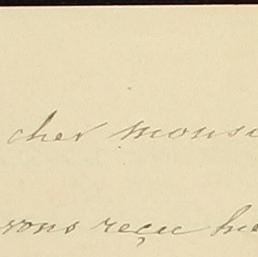 cher monsi
vons reçu hie